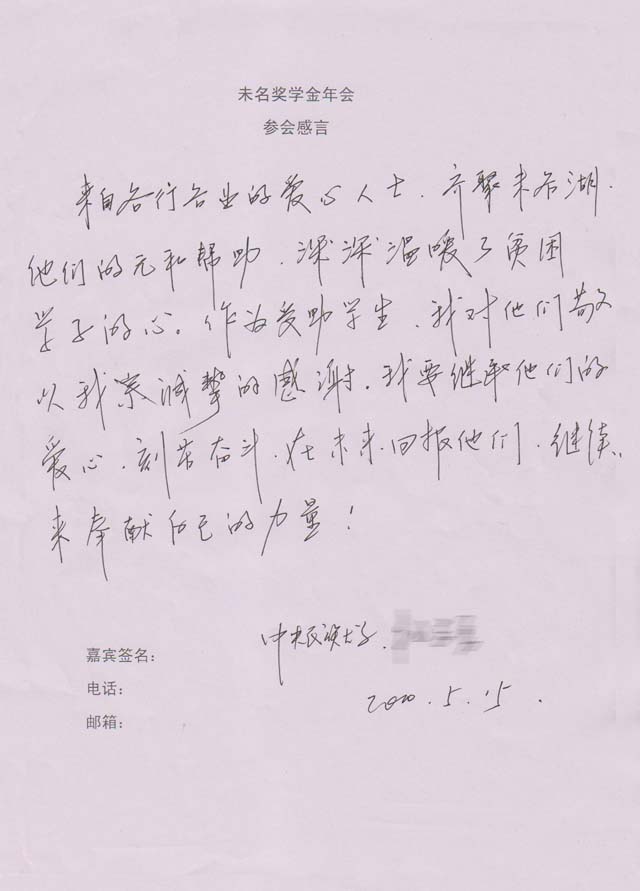 未名奖学金年会
参会感言
来自各行各业的爱心人士，齐聚未名湖.
他们的无私帮助，深深温暖了贫困
学子的心。作为受助学生，我对他们致
以我最诚挚的感谢。我要继承他们的
爱心，刻苦奋斗，在未来回报他们，继续
来奉献自己的力量！
中央民族大学.
嘉宾签名：
电话：
2010.5.15.
邮箱：